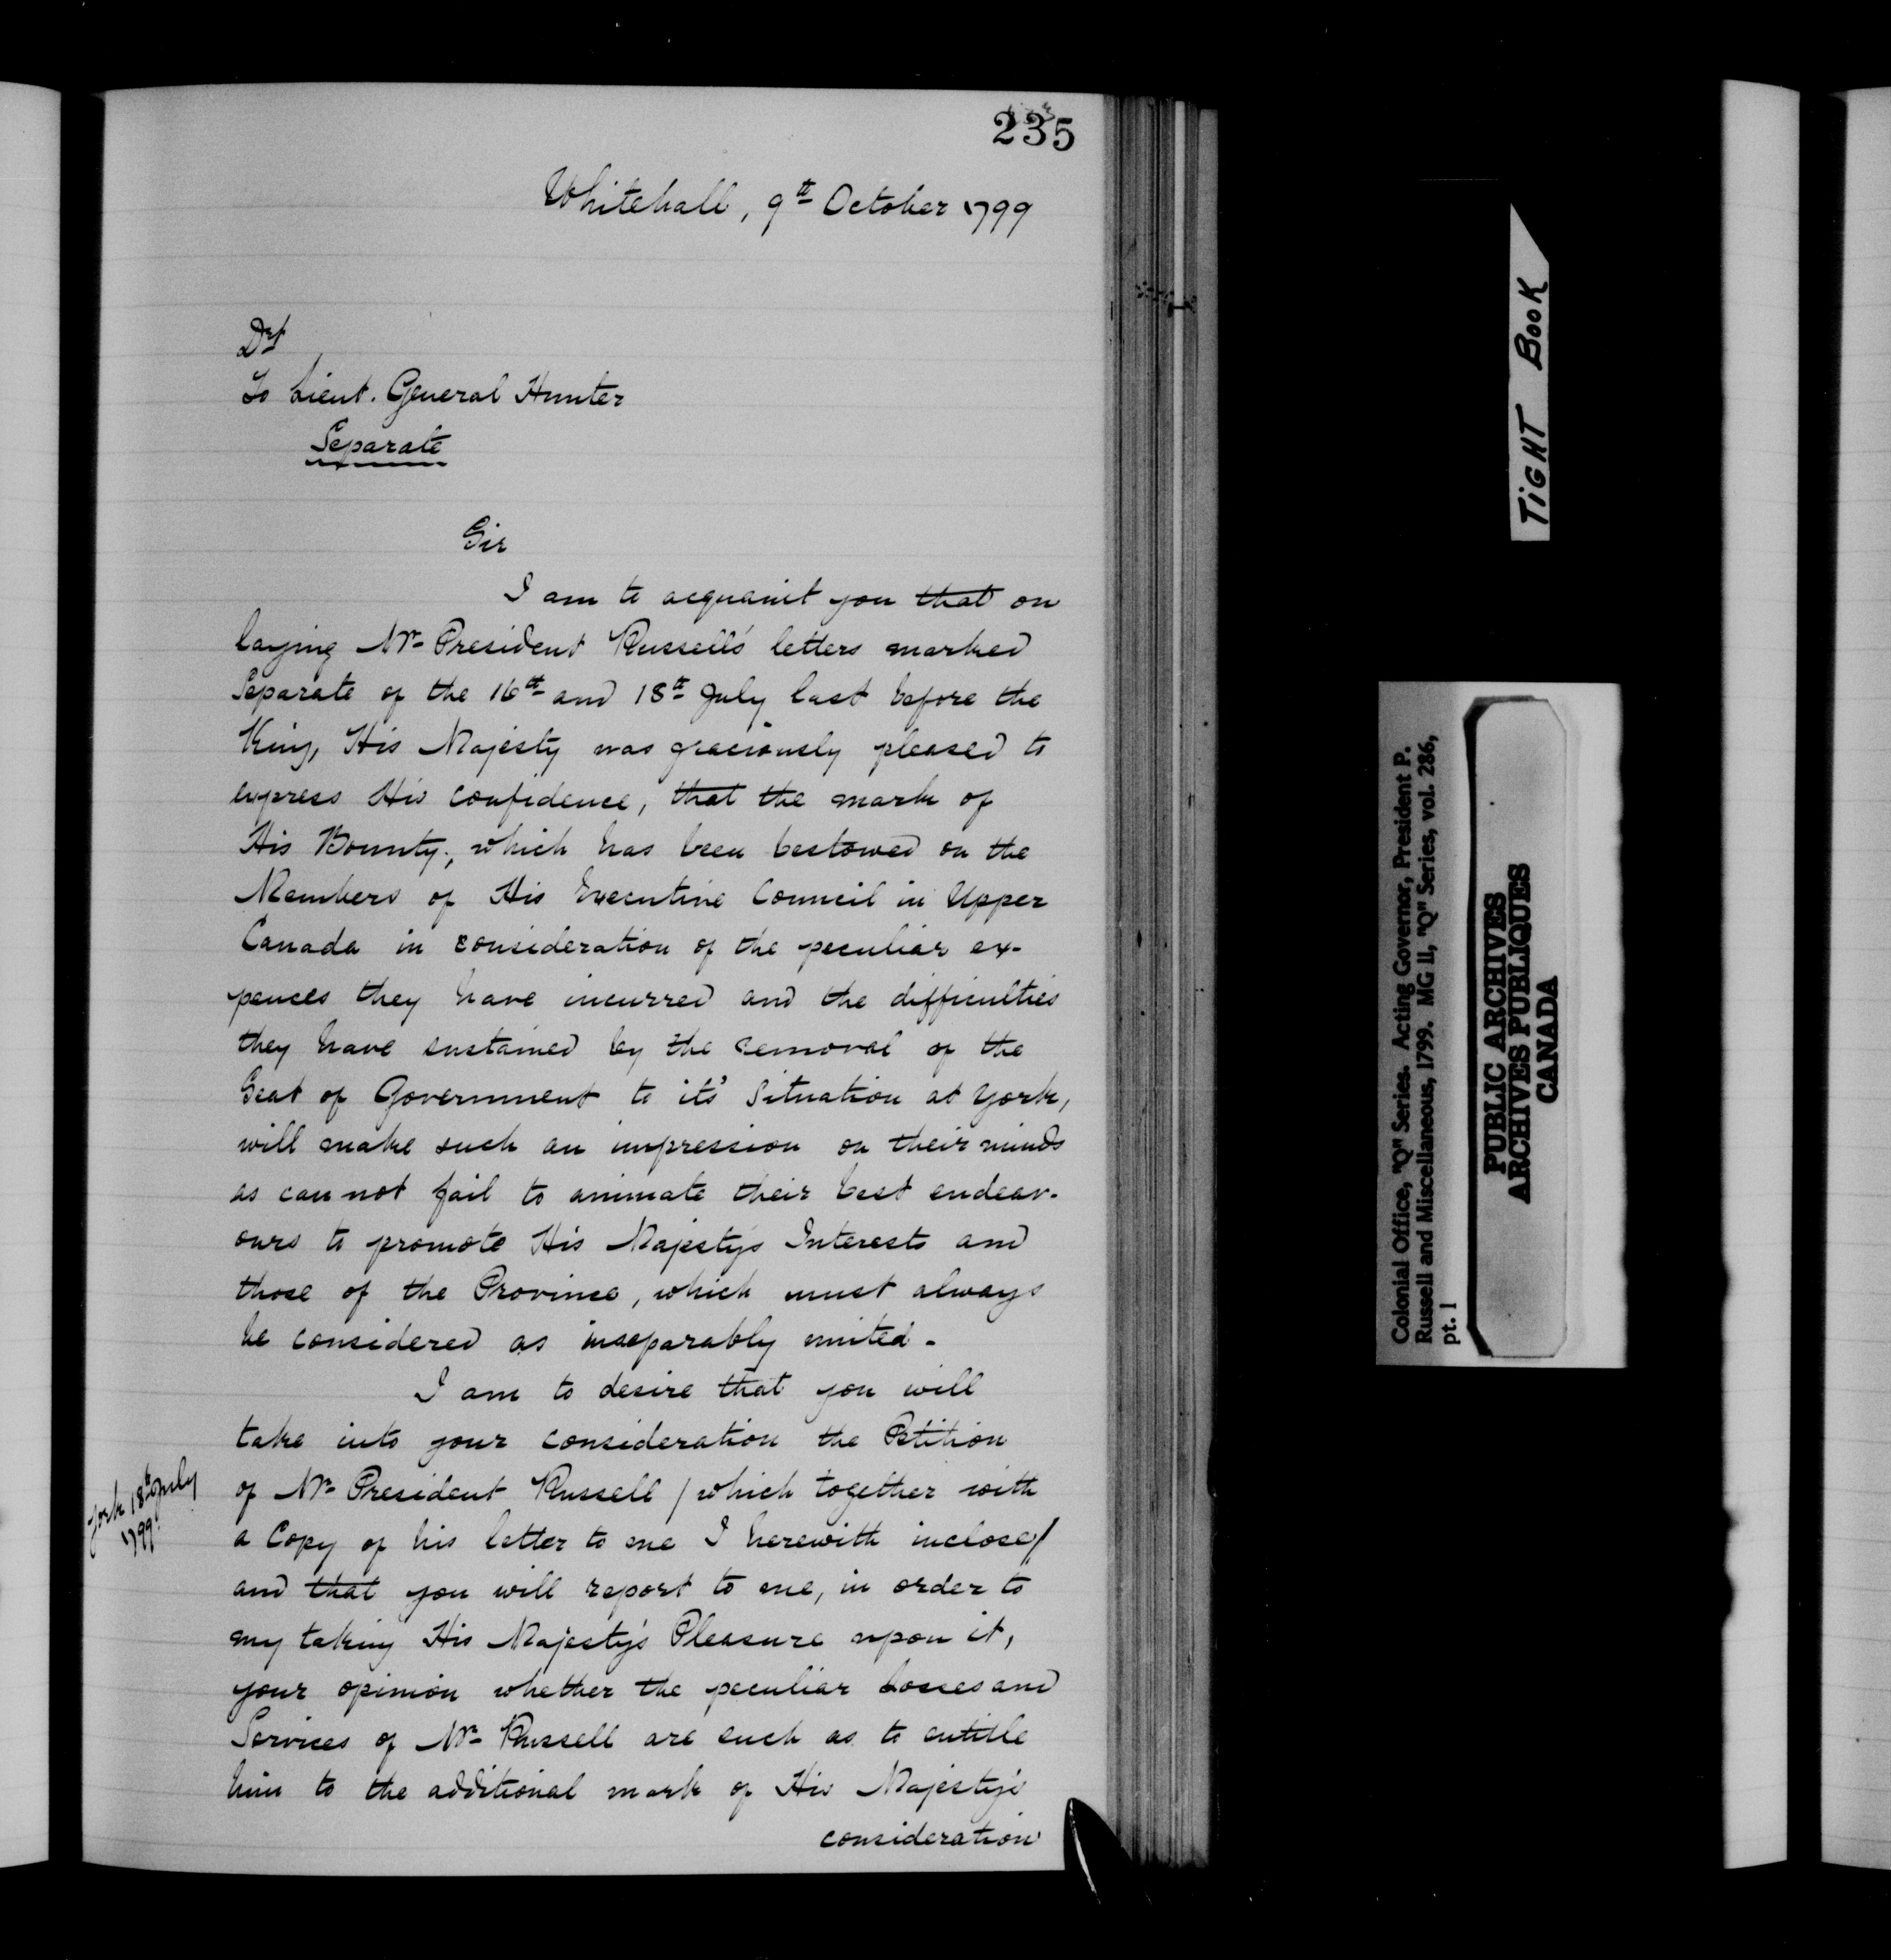 235
Whitehall, 9th October 1799
Dft
To Lieut. General Hunter
Separate
Sir
I am to acquaint you that on
laying Mr President Russell's letters marked
Separate of the 16th and 18th July last before the
King, His Majesty was graciously pleased to
express His confidence, that the mark of
His Bounty, which has been bestowed on the
Members of His Executive Council in Upper
Canada in consideration of the peculiar ex-
pences they have incurred and the difficulties
they have sustained by the removal of the
Seat of Government to its' situation at York,
will make such an impression on their minds
as can not fail to animate their best endeav-
ours to promote His Majesty's Interests and
those of the Province, which must always
be considered as inseparably united -
I am to desire that you will
take into your consideration the Petition
of Mr President Russell / which together with
a Copy of his letter to me I herewith inclose /
and that you will report to me, in order to
my taking His Majesty's Pleasure upon it,
your opinion whether the peculiar Losses and
Services of Mr Russell are such as to entitle
him to the additional mark of His Majesty's
consideration
York 18th July
1799.
TIGHT BOOK
Colonial Office, "Q" Series. Acting Governor, President P.
Russell and Miscellaneous, 1799. MG 11, "Q" Series, vol. 286,
pt. 1
PUBLIC ARCHIVES
ARCHIVES PUBLIQUES
CANADA